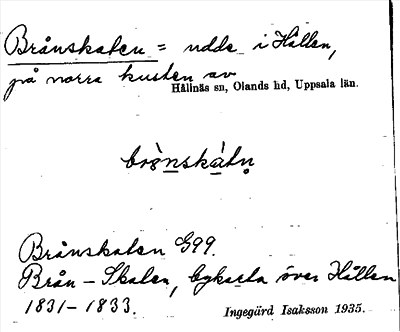 Brånskaten = udde i Hållen,
på norra kusten av
Hållnäs sn, Olands hd, Uppsala län.
Brånskaten G99.
Brån - Skaten, bykarta över Hållen
1831-1833.
Ingegärd Isaksson 1935.